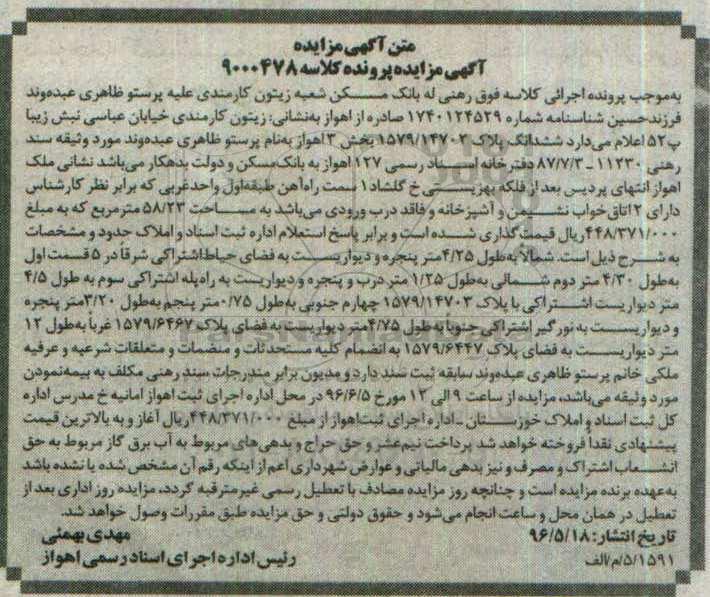 متن آگهی مزایده
آگهی مزایده پرونده کلاسه ۹۰۰۰۴۷۸
به‌موجب پرونده اجرائی کلاسه فوق رهنی له بانک مسکن شعبه زیتون کارمندی علیه پرستو ظاهری عبده‌وند
فرزندحسین شناسنامه شماره ۱۷۴۰۱۲۴۵۲۹ صادره از اهواز به‌نشانی: زیتون کارمندی خیابان عباسی نبش زیبا
پ۵۲ اعلام می‌دارد ششدانگ، پلاک ۱۵۷۹/۱۴۷۰۲ بخش ۳ اهواز به‌نام پرستو ظاهری عبده‌وند مورد وثیقه سند
رهنی ۱۱۲۳۰ ـ ۸۷/۷/۳ دفترخانه اسناد رسمی ۱۲۷ اهواز به بانک‌مسکن و دولت بدهکار می‌باشد نشانی ملک
اهواز انتهای پردیس بعد از فلکه بهزیستی خ گلشاد۱ سمت راه‌آهن طبقه‌اول واحدغربی که برابر نظر کارشناس
دارای ۲اتاق‌خواب نشیمن و آشپزخانه و فاقد درب ورودی می‌باشد به مساحت ۵۸/۲۳ مترمربع که به مبلغ
۴۴۸/۳۷۱/۰۰۰ریال قیمت‌گذاری شده است و برابر پاسخ استعلام اداره ثبت اسناد و املاک حدود و مشخصات
به شرح ذیل است. شمالاً به‌طول ۴/۲۵متر پنجره و دیواریست به فضای حیاط‌اشتراکی شرقاً در ۵ قسمت اول
به‌طول ۴/۳۰ متر دوم شمالی به‌طول ۱/۲۵ متر درب و پنجره و دیواریست به راه‌پله اشتراکی سوم به طول ۴/۵
متر دیواریست اشتراکی با پلاک ۱۵۷۹/۱۴۷۰۳ چهارم جنوبی به‌طول ۰/۷۵متر پنجم به‌طول ۳/۲۰متر پنجره
و دیواریست به نورگیر اشتراکی جنوباً به‌طول ۴/۷۵متر دیواریست به فضای پلاک ۱۵۷۹/۶۴۶۷ غرباً به‌طول ۱۲
متر دیواریست به فضای پلاک ۱۵۷۹/۶۴۴۷ به انضمام کلیه مستحدثات و منضمات و متعلقات شرعیه و عرفیه
ملکی خانم پرستو ظاهری عبده‌وند سابقه ثبت سند دارد و مدیون برابر مندرجات سند رهنی مکلف به بیمه‌نمودن
مورد وثیقه می‌باشد، مزایده از ساعت ۹ الی ۱۲ مورخ ۹۶/۶/۵ در محل اداره اجرای ثبت اهواز امانیه خ مدرس اداره
کل ثبت اسناد و املاک خوزستان ـ اداره اجرای ثبت اهواز از مبلغ ۴۴۸/۳۷۱/۰۰۰ریال آغاز و به بالاترین قیمت
پیشنهادی نقداً فروخته خواهد شد پرداخت نیم‌عشر و حق حراج و بدهی‌های مربوط به آب برق گاز مربوط به حق
انشعاب اشتراک و مصرف و نیز بدهی مالیاتی و عوارض شهرداری اعم از اینکه رقم آن مشخص شده یا نشده باشد
به‌عهده برنده مزایده است و چنانچه روز مزایده مصادف با تعطیل رسمی غیرمترقبه گردد، مزایده روز اداری بعد از
تعطیل در همان محل و ساعت انجام می‌شود و حقوق دولتی و حق مزایده طبق مقررات وصول خواهد شد.
تاریخ انتشار: ۹۶/۵/۱۸
مهدی بهمئی
۵/۱۵۹۱/م/الف
رئیس اداره اجرای اسناد رسمی اهواز